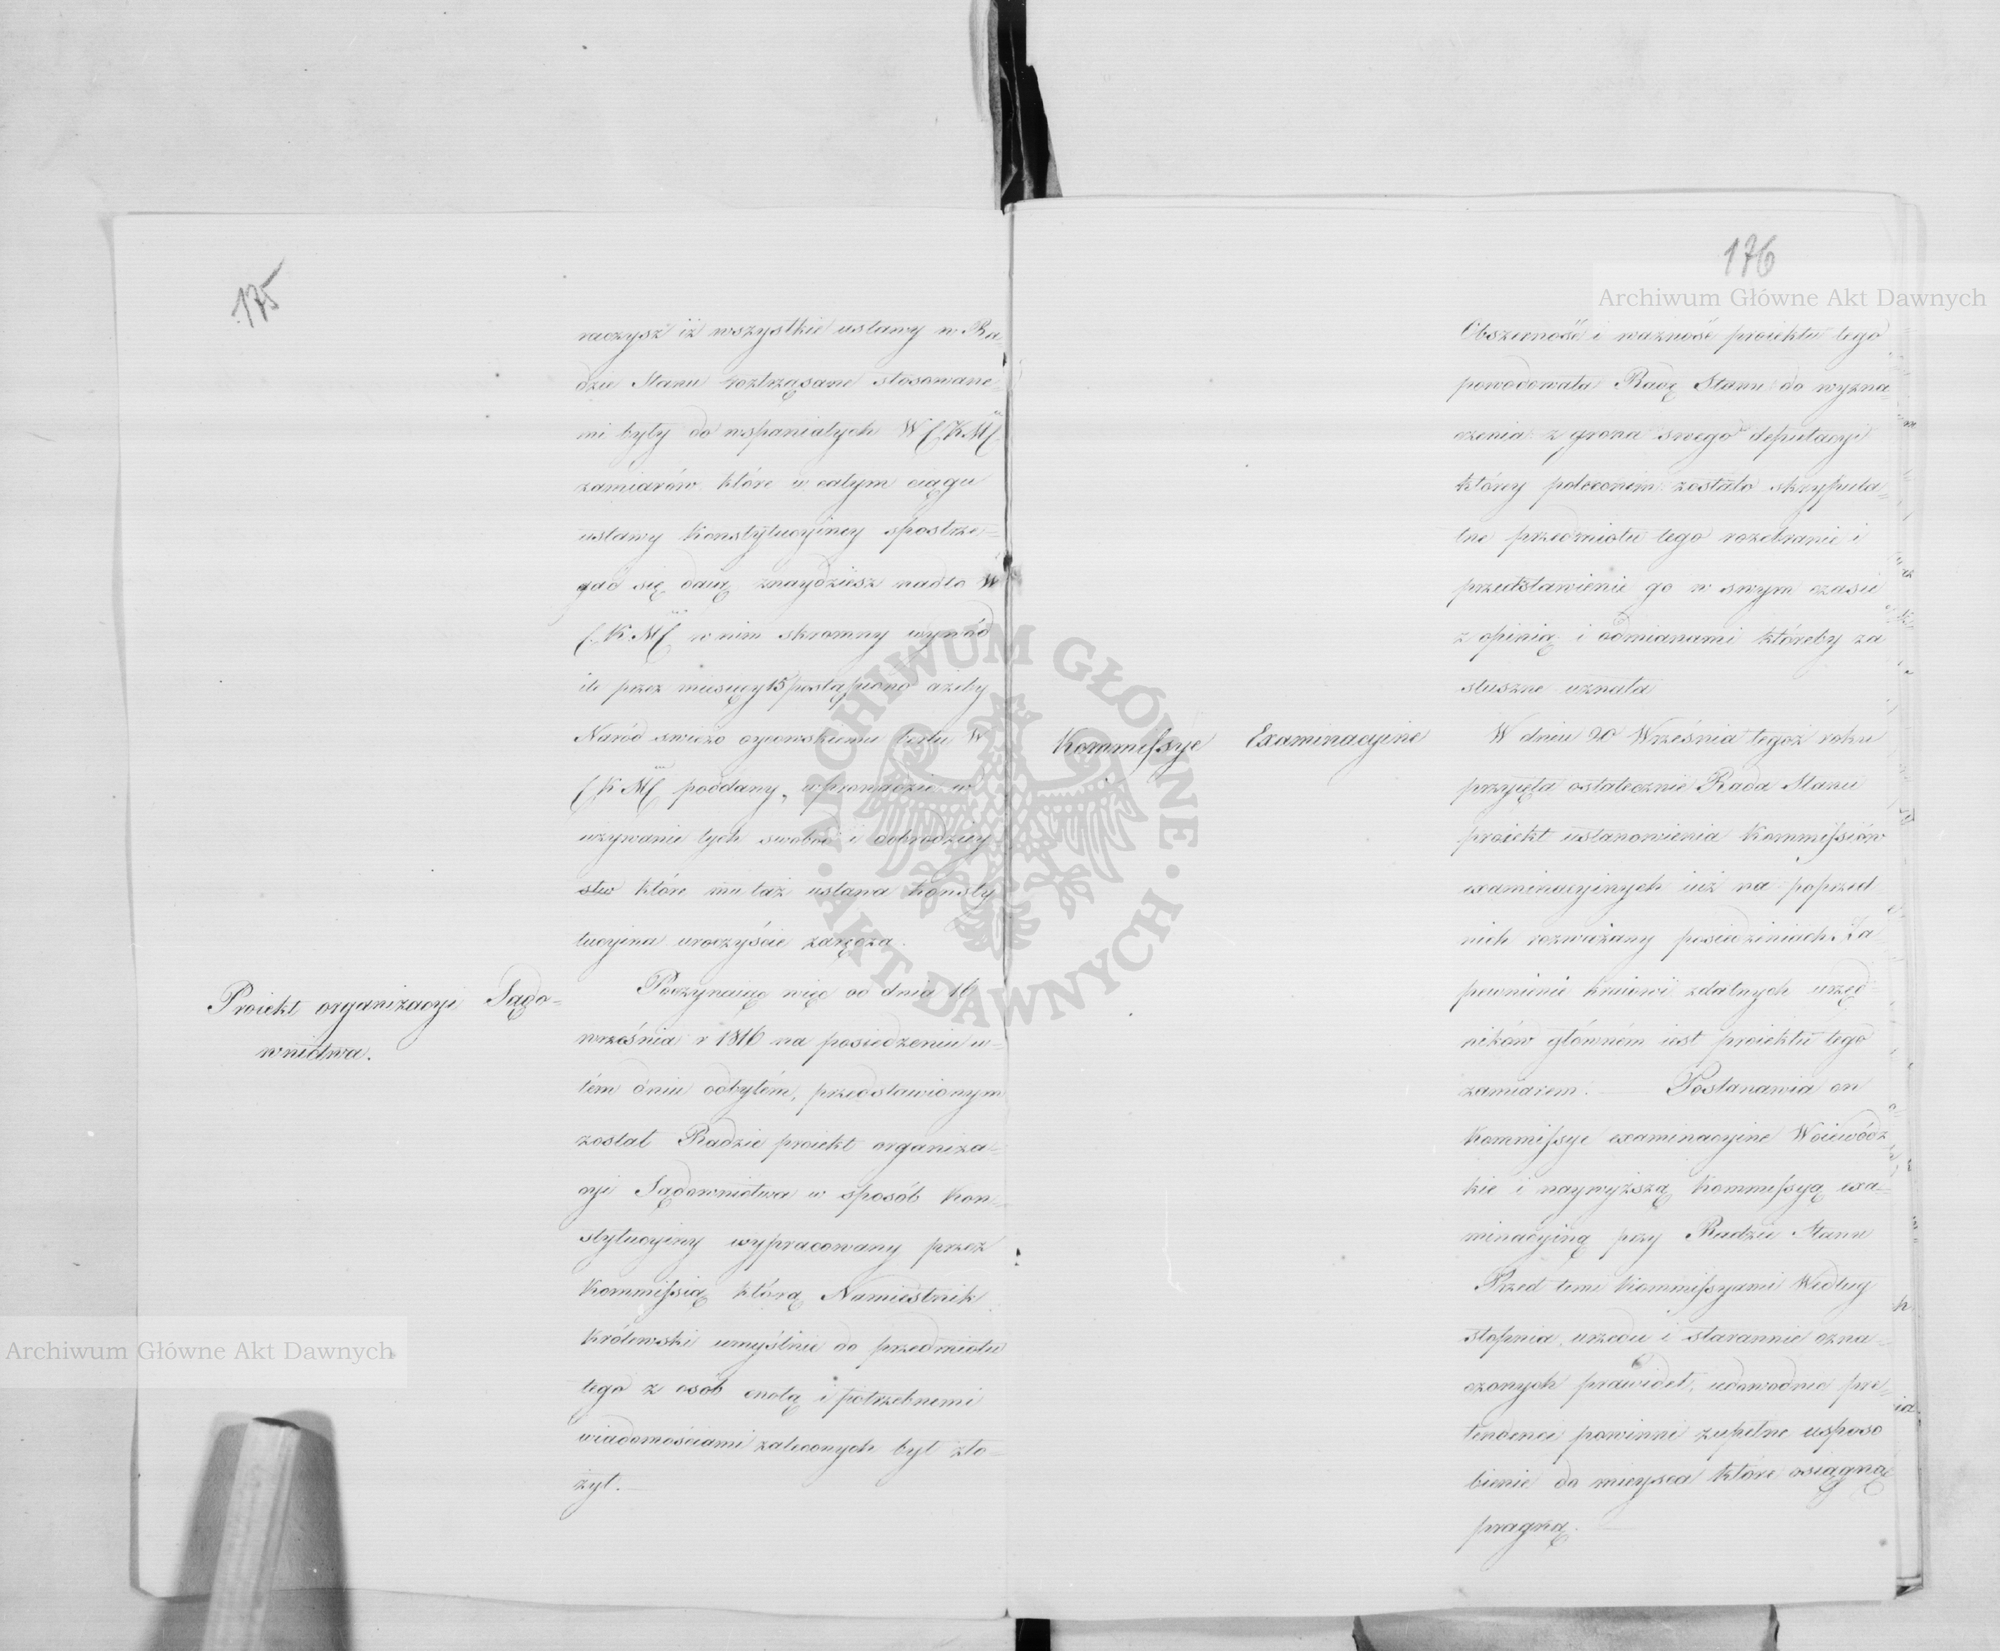 175
raczysz iż wszystkie ustawy w Ra-
dzie Stanu roztrząsane stosowane
mi były do wspaniałych W C K M
zamiarów które w całym ciągu
ustawy Konstytucyiney spostrze-
gać się daią znaydziesz nadto W
C. K. M. w nim skromny wywód
ile przez miesięcy 15 postąpiono ażeby
Naród swieżo oycowskiemu berłu W
C K M poddany, wprowadzić w
używanie tych swobód i dobrodziey
stw które mu taż ustawa konsty
tucyina uroczyście zaręcza.
Proiekt organizacyi Sądo-
wnictwa.
Poczynaiąc więc od dnia 16
września r 1816 na posiedzeniu w
tém dniu odbytém, przedstawionym
został Radzie proiekt organiza-
cyi Sądownictwa w sposób Kon-
stytucyiny wypracowany przez
Kommissią którą Namiestnik
Królewski umyślnie do przedmiotu
tego z osób cnotą i potrzebnemi
wiadomościami zaleconych był zło-
żył.
176
Archiwum Główne Akt Dawnych
Obszerność i ważność proiektu tego
powodowała Radę Stanu do wyzna-
czenia z grona swego deputacyi
któréy poleconém zostało skrypula-
tne przedmiotu tego rozebranie i
przedstawienie go w swym czasie
z opinią i odmianami któreby za
słuszne uznała
Kommissye Examinacyine
W dniu 20 Września tegoż roku
przyięła ostatecznie Rada Stanu
proiekt ustanowienia Kommissiów
examinacyinych iuż na poprzed
nich rozważany posiedzeniach. Za
pewnienie kraiowi zdatnych urzęd-
ników głównem iest proiektu tego
zamiarem. Postanawia on
Kommissye examinacyine Woiewódz
kie i naywyższą Kommissyą exa-
minacyiną przy Radzie Stanu
Przed temi Kommissyami Według
stopnia urzędu i starannie ozna-
czonych prawideł, udowodnić pre-
tendenci powinni zupełne usposo
bienie do mieysca które osiągnąć
pragną.
Archiwum Główne Akt Dawnych
ARCHIWUM GŁÓWNE
AKT DAWNYCH